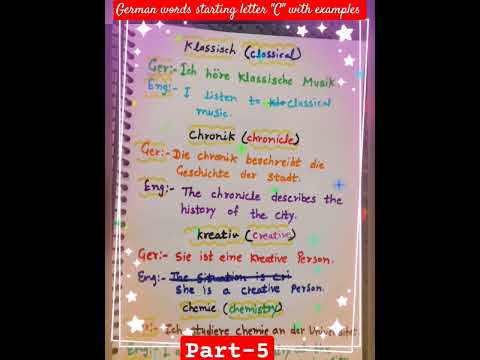 German words starting letter "C" with examples
Klassisch (classical)
Ger:- Ich höre Klassische Musik
Eng:- I listen to classical
music.
Chronik (chronicle)
Ger:- Die chronik beschreibt die
Geschichte der Stadt.
Eng:- The chronicle describes the
history of the city.
kreativ (creative)
Ger:- Sie ist eine Kreative Person.
Eng:- The Situation is cri
She is a creative Person.
chemie (chemistry)
Ger:- Ich studiere chemie an der Universität
Eng:- I
Part-5